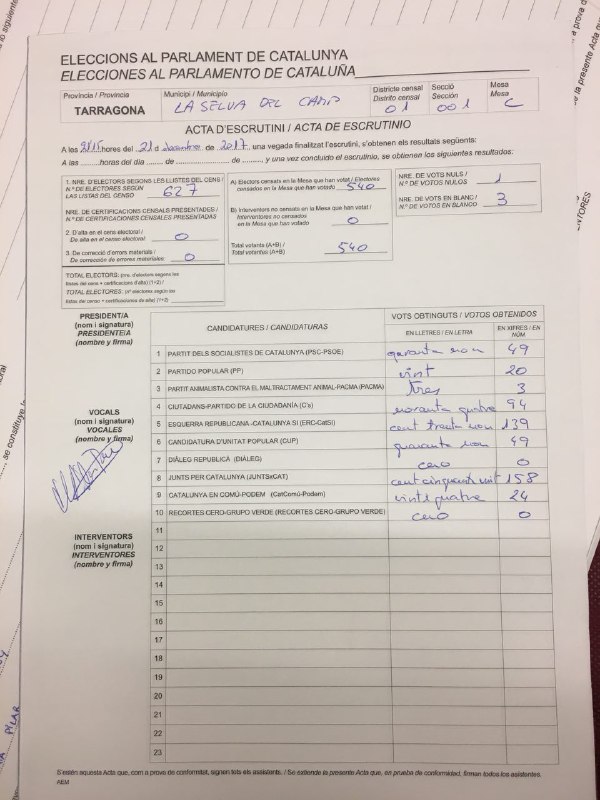 ELECCIONS AL PARLAMENT DE CATALUNYA
ELECCIONES AL PARLAMENTO DE CATALUÑA
Província / Provincia
TARRAGONA
Municipi / Municipio
LA SELVA DEL CAMP
Districte censal
Distrito censal
01
Secció
Sección
001
Mesa
Mesa
C
ACTA D'ESCRUTINI / ACTA DE ESCRUTINIO
A les 21:15 hores del 21 d desembre de 2017, una vegada finalitzat l'escrutini, s'obtenen els resultats següents:
A las hores del día de de y una vez concluido el escrutinio, se obtienen los siguientes resultados:
1. NRE. D'ELECTORS SEGONS LES LLISTES DEL CENS /
N.º DE ELECTORES SEGÚN
LAS LISTAS DEL CENSO
627
NRE. DE CERTIFICACIONS CENSALS PRESENTADES /
N.º DE CERTIFICACIONES CENSALES PRESENTADAS
2. D'alta en el cens electoral /
De alta en el censo electoral:
0
3. De correcció d'errors materials /
De corrección de errores materiales:
0
TOTAL ELECTORS: (nre. d'electors segons les
llistes del cens + certificacions d'alta) (1+2) /
TOTAL ELECTORES: (n.º electores según las
listas del censo + certificaciones de alta) (1+2)
A) Electors censats en la Mesa que han votat / Electores
censados en la Mesa que han votado
540
B) Interventors no censats en la Mesa que han votat /
Interventores no censados
en la Mesa que han votado
0
Total votants (A+B) /
Total votantes (A+B)
540
NRE. DE VOTS NULS /
N.º DE VOTOS NULOS
1
NRE. DE VOTS EN BLANC /
N.º DE VOTOS EN BLANCO
3
PRESIDENT/A
(nom i signatura)
PRESIDENTE/A
(nombre y firma)
VOCALS
(nom i signatura)
VOCALES
(nombre y firma)
INTERVENTORS
(nom i signatura)
INTERVENTORES
(nombre y firma)
CANDIDATURES / CANDIDATURAS
VOTS OBTINGUTS / VOTOS OBTENIDOS
EN LLETRES / EN LETRA
EN XIFRES / EN NÚM
1 PARTIT DELS SOCIALISTES DE CATALUNYA (PSC-PSOE) quaranta nou 49
2 PARTIDO POPULAR (PP) vint 20
3 PARTIT ANIMALISTA CONTRA EL MALTRACTAMENT ANIMAL-PACMA (PACMA) tres 3
4 CIUTADANS-PARTIDO DE LA CIUDADANÍA (C's) noranta quatre 94
5 ESQUERRA REPUBLICANA -CATALUNYA SÍ (ERC-CatSí) cent trenta nou 139
6 CANDIDATURA D'UNITAT POPULAR (CUP) quaranta nou 49
7 DIÀLEG REPUBLICÀ (DIÀLEG) cero 0
8 JUNTS PER CATALUNYA (JUNTSxCAT) cent cinquanta vuit 158
9 CATALUNYA EN COMÚ-PODEM (CatComú-Podem) vint i quatre 24
10 RECORTES CERO-GRUPO VERDE (RECORTES CERO-GRUPO VERDE) cero 0
11
12
13
14
15
16
17
18
19
20
21
22
23
S'estén aquesta Acta que, com a prova de conformitat, signen tots els assistents. / Se extiende la presente Acta que, en prueba de conformidad, firman todos los asistentes.
AEM
PILAR